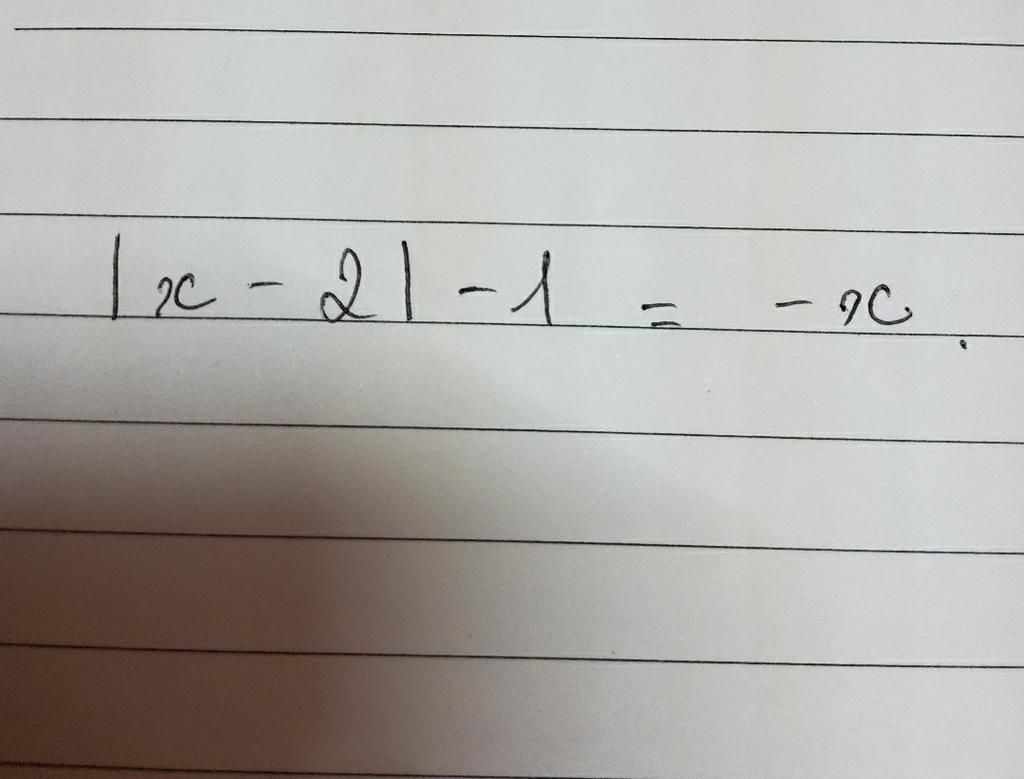 |x - 2| - 1 = - x.